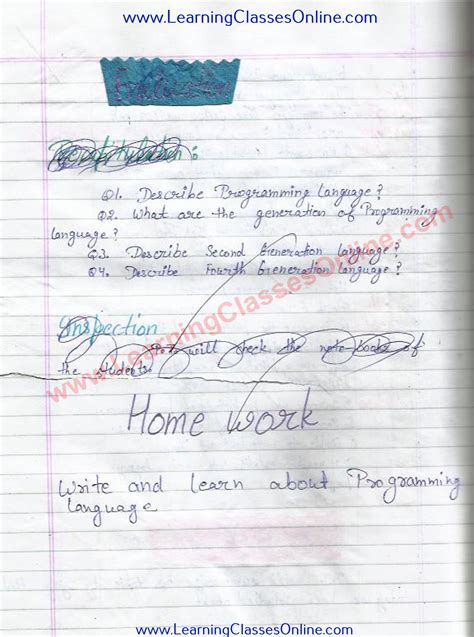 www.LearningClassesOnline.com
Evaluation
Recapitulation :
Q1. Describe Programming Language?
Q2. What are the generation of Programming
language?
Q3. Describe Second Generation language?
Q4. Describe Fourth Generation language?
Inspection
will check the note books of
the students
www.LearningClassesOnline.com
Home work
Write and learn about Programming
language
www.LearningClassesOnline.com